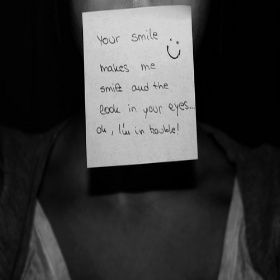 Your smile :)
makes me
smile and the
look in your eyes...
oh, I'm in trouble!